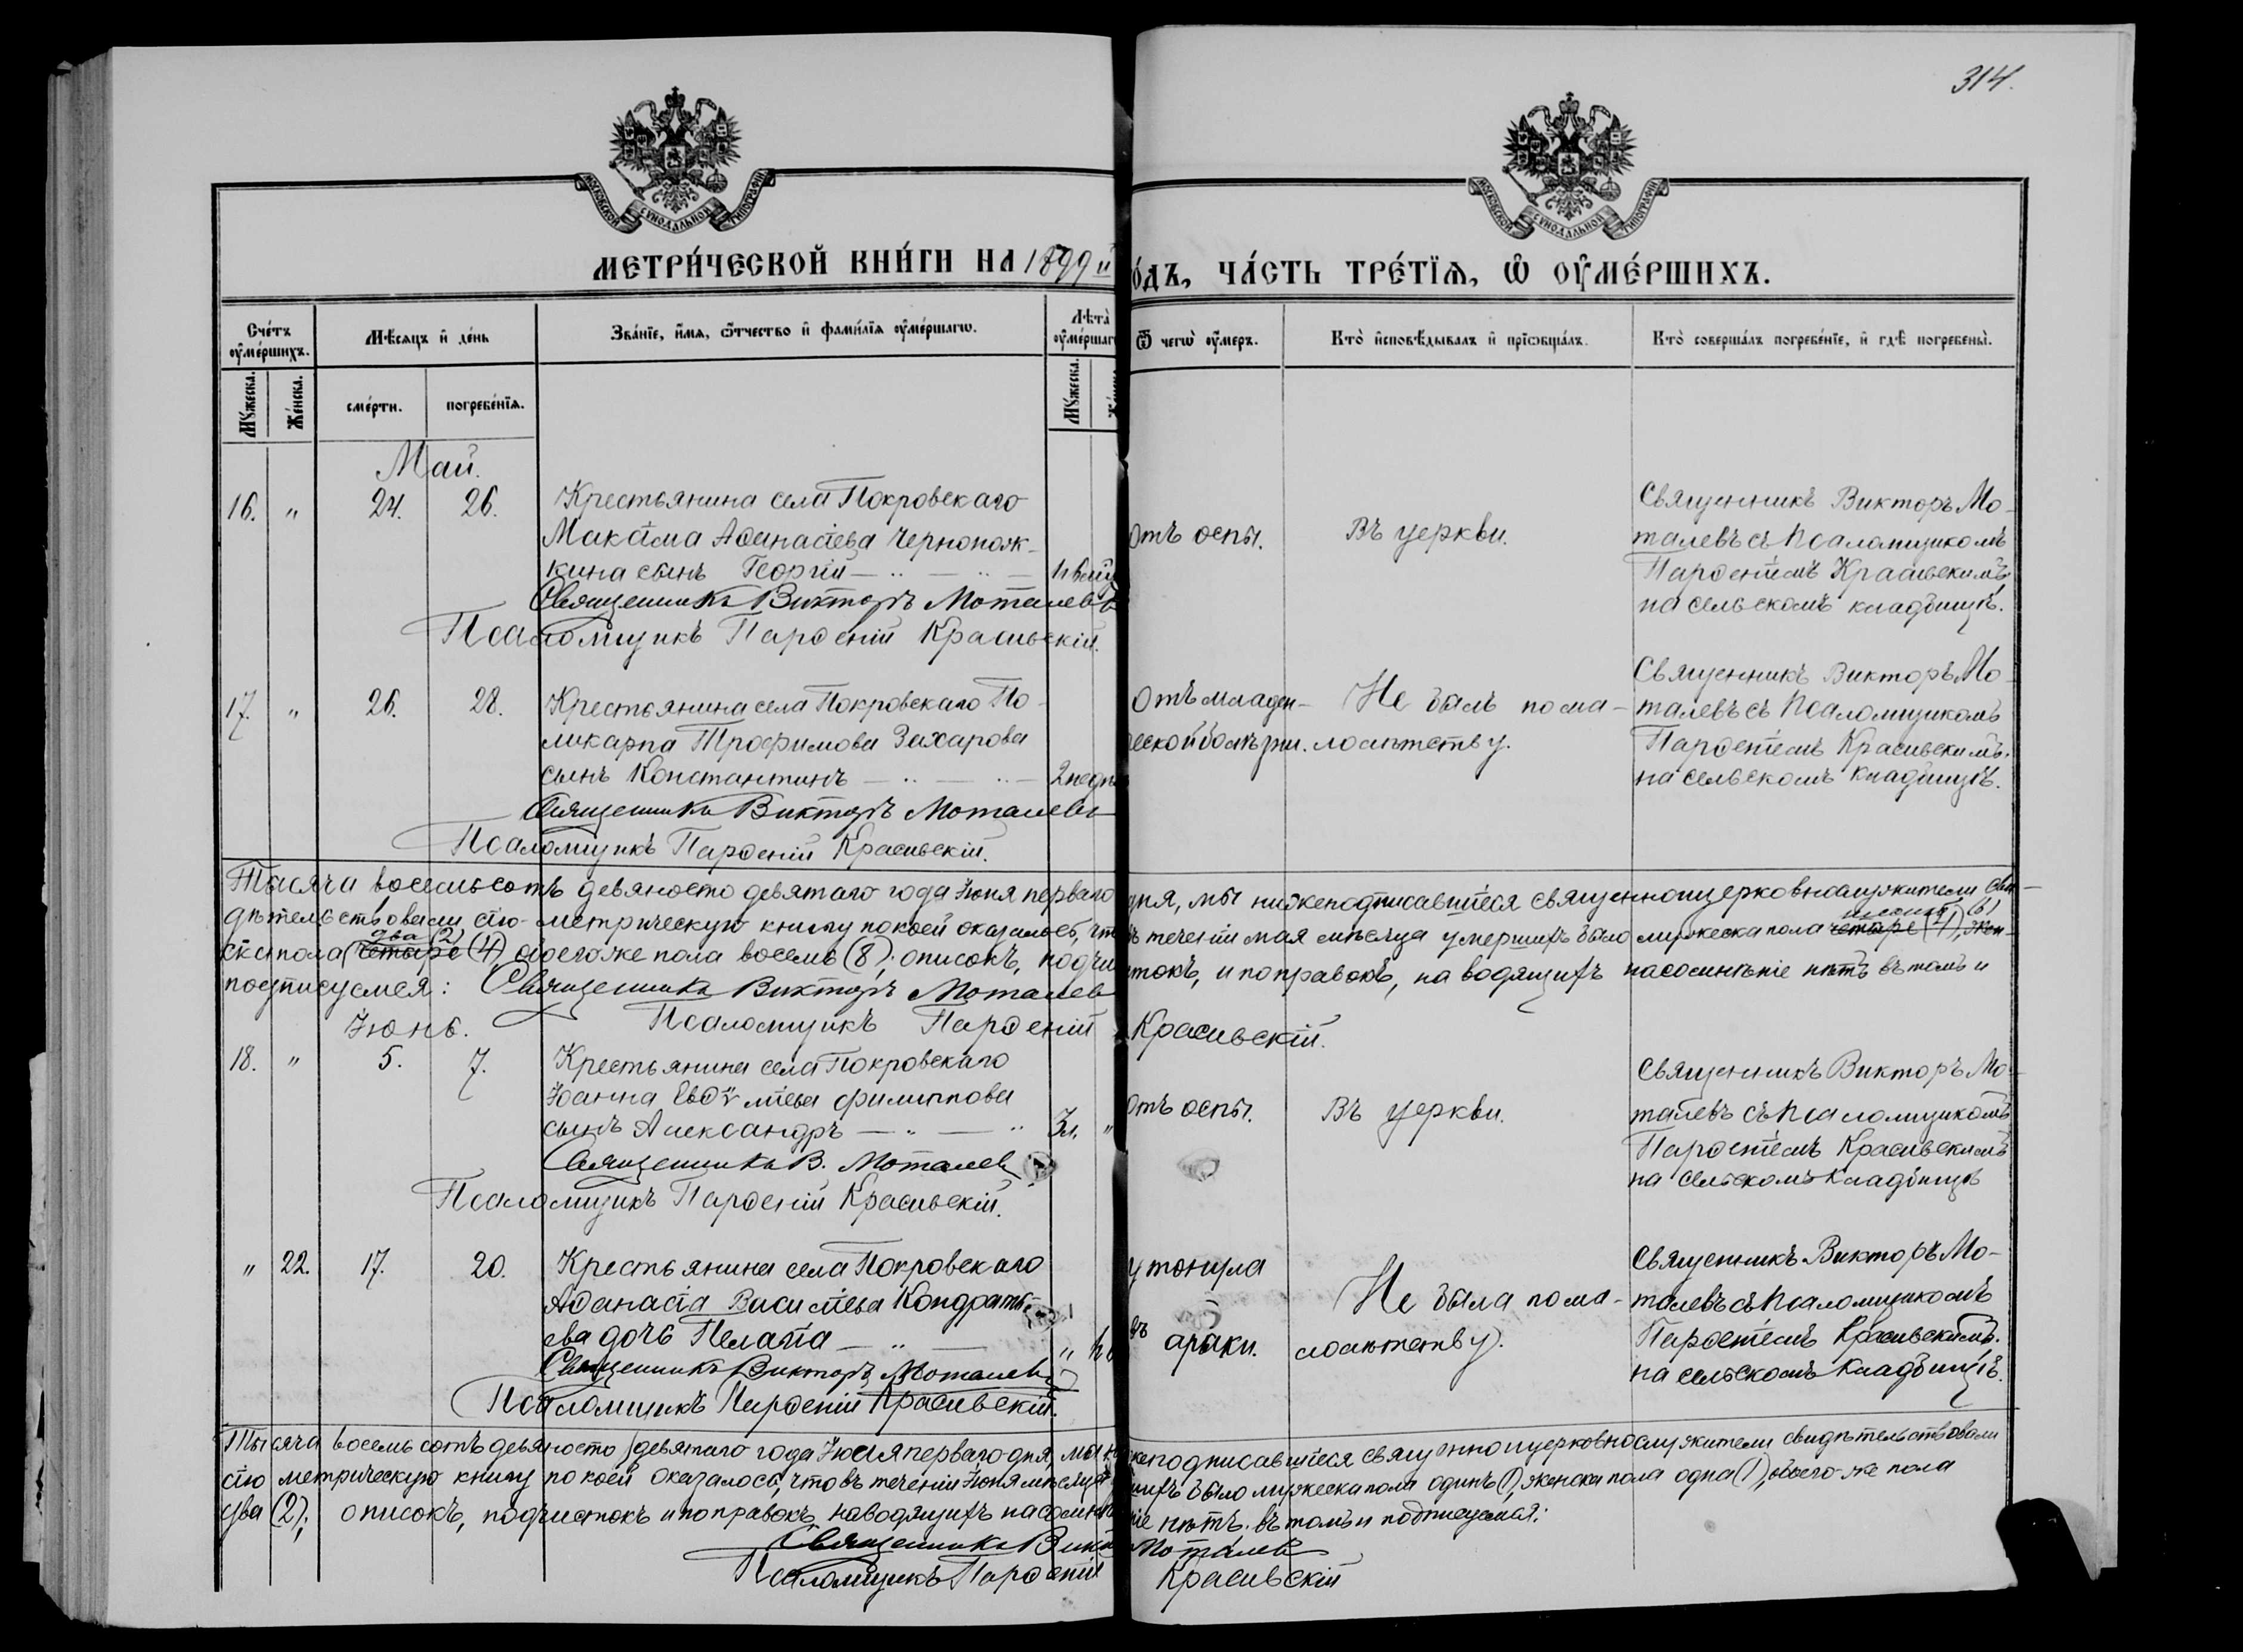 314.
МОСКОВСКОЙ СУНОДАЛЬНОЙ ТИПОГРАФІИ
МОСКОВСКОЙ СУНОДАЛЬНОЙ ТИПОГРАФІИ
МЕТРИ́ЧЕСКОЙ КНИ́ГИ НА 1899 й
О́ДЪ, ЧА́СТЬ ТРЕ́ТЇѦ, Ѡ ОУ҆МЕ́РШИХЪ.
Сче́тъ оу҆ме́ршихъ.
Мѣ́сѧцъ и҆ де́нь
Зва́нїе, и҆́мѧ, ѻ҆́тчество и҆ фами́лїѧ оу҆ме́ршагѡ.
Лѣта̀ оу҆ме́ршаг
Ѿ чегѡ̀ оу҆́меръ.
Кто̀ и҆сповѣ́дывалъ и҆ прїѻбща́лъ.
Кто̀ соверша́лъ погребе́нїе, и҆ гдѣ̀ погребены̀.
Мꙋ́жеска.
Же́нска.
сме́рти.
погребе́нїѧ.
Мꙋ́жеска.
Май.
16. " 24. 26. Крестьянина села Покровскаго
Максима Аѳанасіева Чернонож-
кина сынъ Георгій — " — " —
Отъ оспы. Въ церкви.
Священникъ Викторъ Мо-
талевъ съ Псаломщикомъ
Парѳеніемъ Красивскимъ,
на сельскомъ кладбищѣ.
Священникъ Викторъ Моталевъ
Псаломщикъ Парѳеній Красивскій.
17. " 26. 28. Крестьянина села Покровскаго По-
ликарпа Трофимова Захарова
сынъ Константинъ — " — " — 2 недѣ
Отъ младен-
ческой болѣзни. Не былъ по ма-
лолѣтству.
Священникъ Викторъ Мо-
талевъ съ Псаломщикомъ
Парѳеніемъ Красивскимъ,
на сельскомъ кладбищѣ.
Священникъ Викторъ Моталевъ
Псаломщикъ Парѳеній Красивскій.
Тысяча восемьсотъ девяносто девятаго года Іюня перваго дня, мы нижеподписавшіеся священноцерковнослужители сви-
дѣтельствовали сію метрическую книгу по коей оказалось, что въ теченіи мая мѣсяца умершихъ было мужеска пола четыре (4), шесть (6) жен-
ска пола четыре (4) два (2) обоего же пола восемь (8); описокъ, подчистокъ, и поправокъ, наводящихъ на сомнѣніе нѣтъ въ томъ и
подписуемся: Священникъ Викторъ Моталевъ
Псаломщикъ Парѳеній Красивскій.
Іюнь.
18. " 5. 7. Крестьянина села Покровскаго
Іоанна Евѳѵміева Филиппова
сынъ Александръ — " — " 3 л. "
Отъ оспы. Въ церкви.
Священникъ Викторъ Мо-
талевъ съ Псаломщикомъ
Парѳеніемъ Красивскимъ
на сельскомъ кладбищѣ
Священникъ В. Моталевъ
Псаломщикъ Парѳеній Красивскій.
" 22. 17. 20. Крестьянина села Покровскаго
Аѳанасія Василіева Кондратье-
ва дочь Пелагія — " — "
утонула
въ арыки. Не была по ма-
лолѣтству.
Священникъ Викторъ Мо-
талевъ съ Псаломщикомъ
Парѳеніемъ Красивскимъ,
на сельскомъ кладбищѣ.
Священникъ Викторъ Моталевъ
Псаломщикъ Парѳеній Красивскій.
Тысяча восемьсотъ девяносто девятаго года Іюля перваго дня, мы нижеподписавшіеся священноцерковнослужители свидѣтельствовали
сію метрическую книгу по коей оказалось, что въ теченіи Іюня мѣсяца шихъ было мужеска пола одинъ (1), женска пола одна (1), обоего же пола
два (2); описокъ, подчистокъ и поправокъ наводящихъ на сомнѣніе нѣтъ. въ томъ и подписуемся:
Священникъ Викт Моталевъ
Псаломщикъ Парѳеній Красивскій